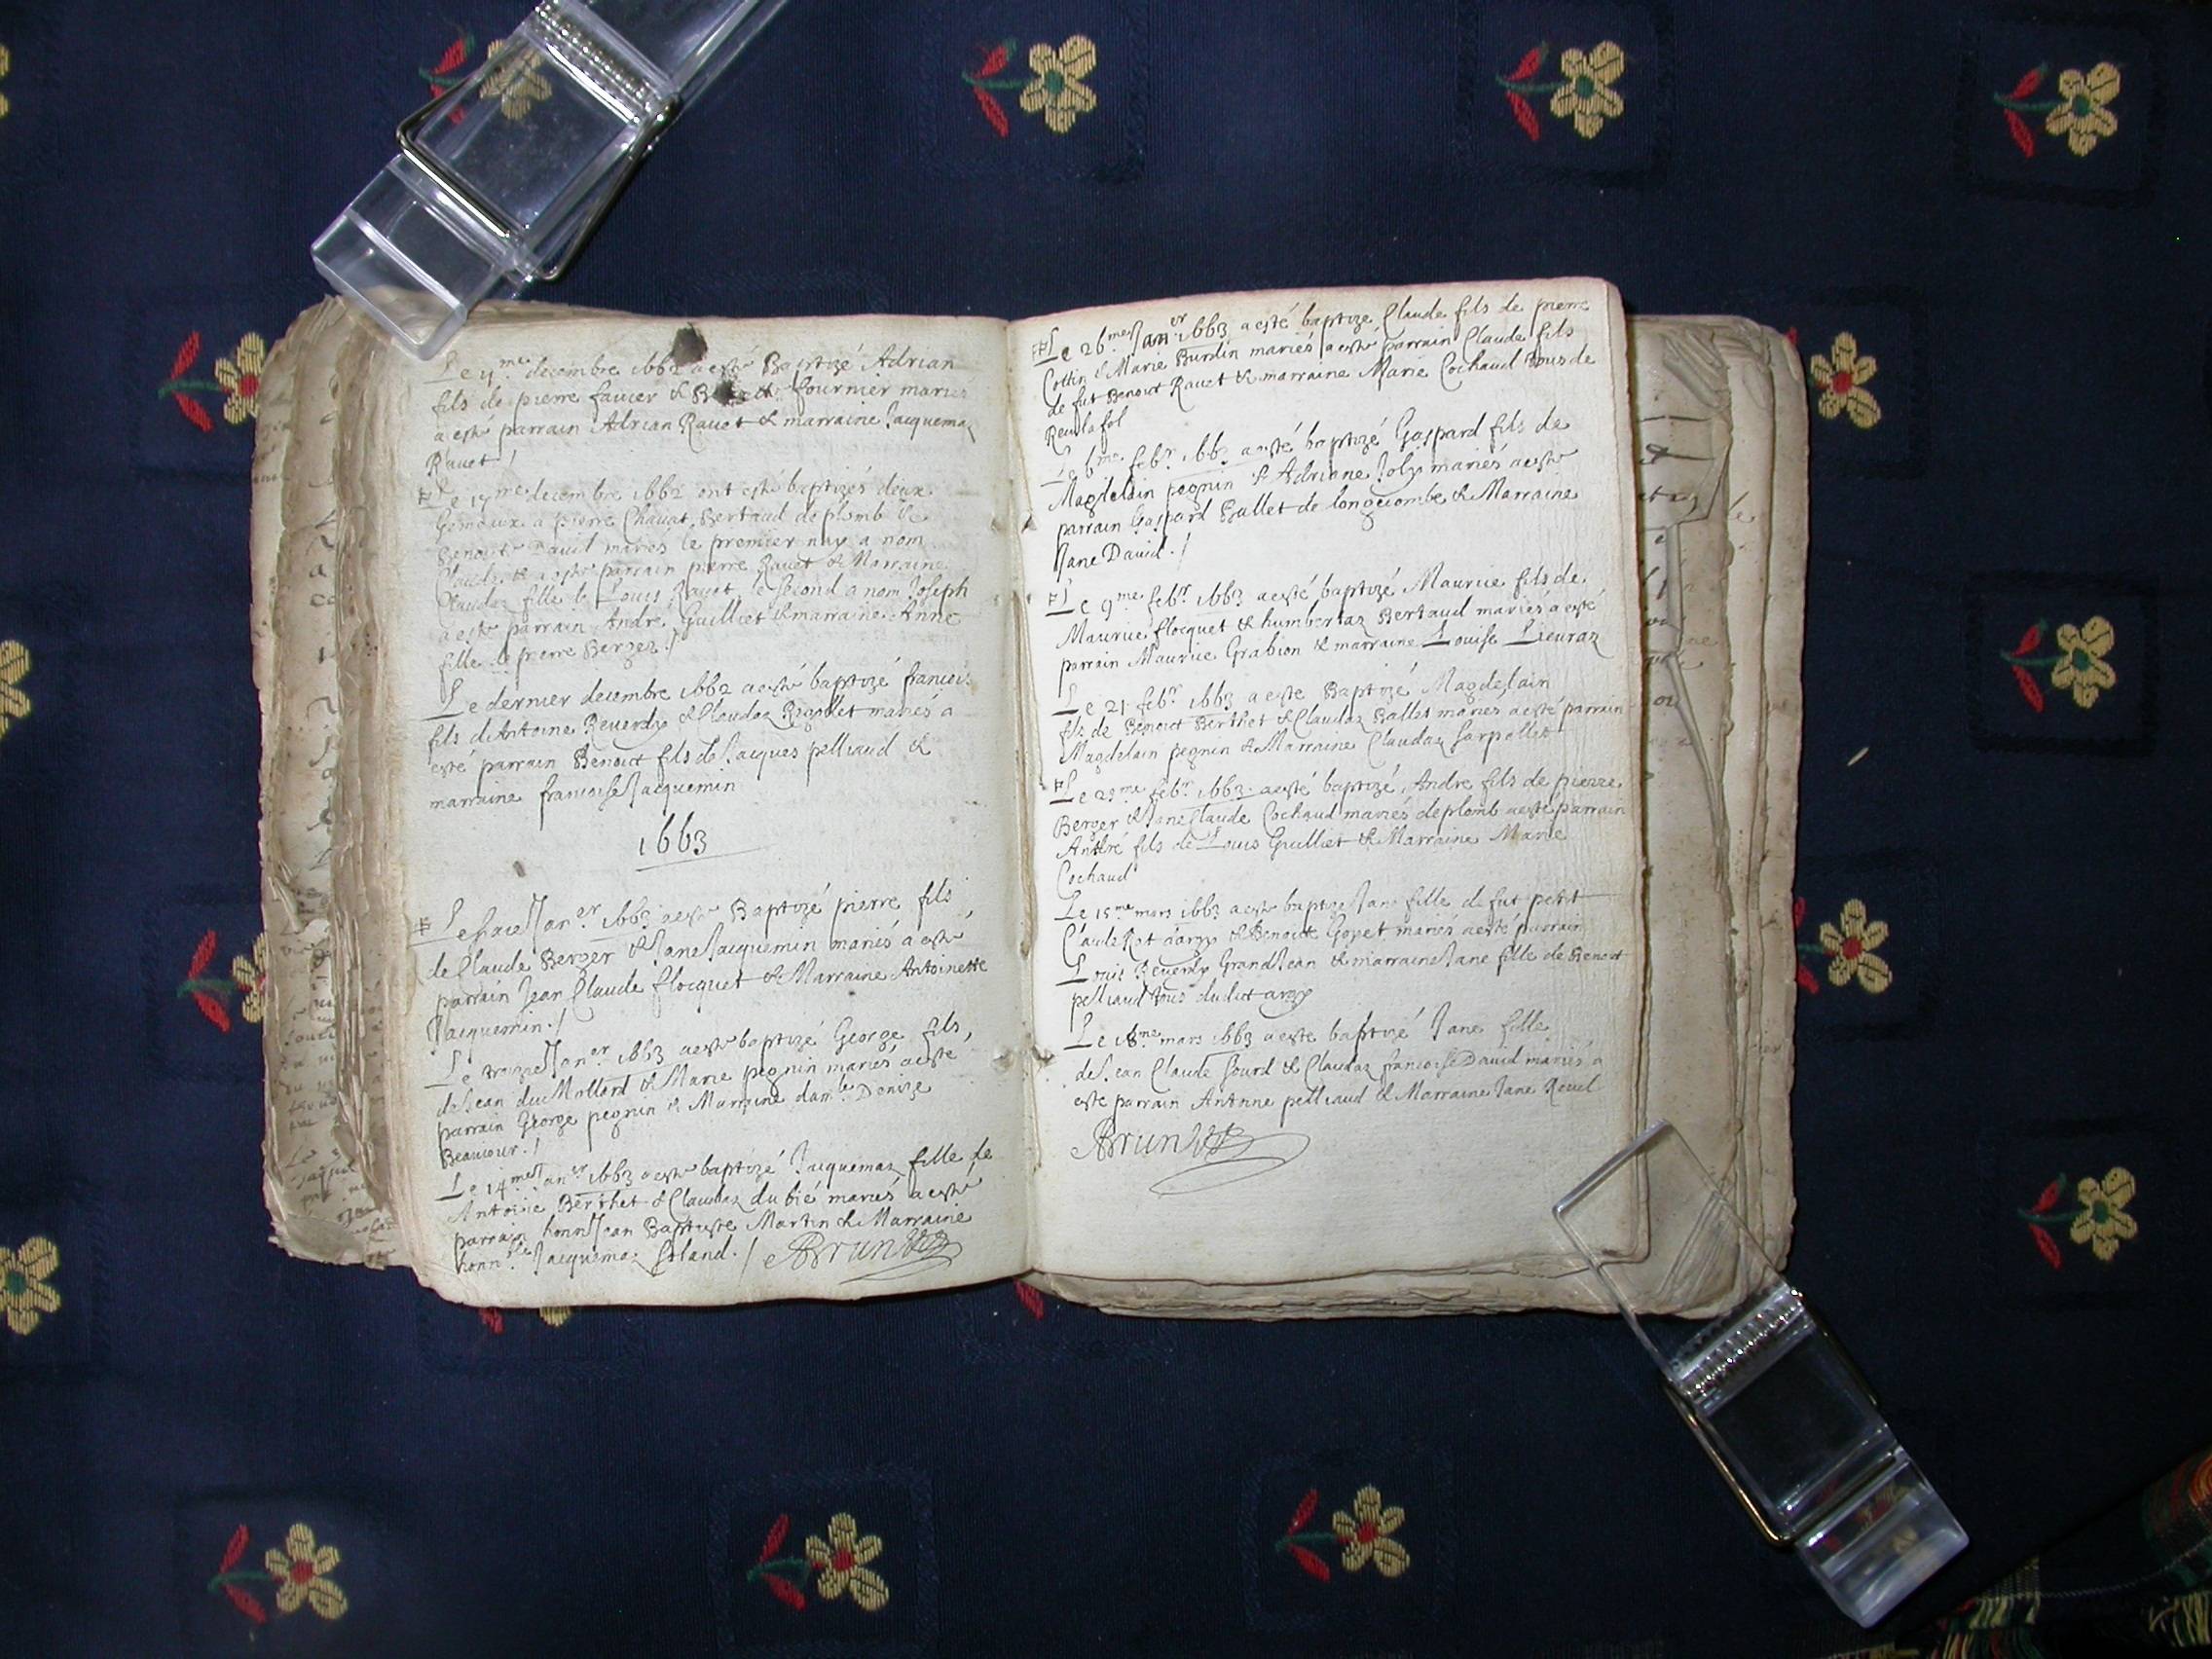 Le 4.me decembre 1662 a esté Baptizé Adrian
fils de pierre favier & fournier mariés
a esté parrain Adrian Ravet & marraine Jacquemaz
Ravet /
Le 19me decembre 1662 ont esté baptizés deux
Gemeaux a pierre Chavat Bertaud de plomb &
Benoite David mariés le premier nay a nom
Claude & a esté parrain pierre Ravet & Marraine
Claudaz fille de Louis Ravet, le second a nom Joseph
a esté parrain André Guilliet & marraine Anne
fille de pierre Berger /
Le dernier decembre 1662 a esté baptizé francois
fils d'Antoine Reverdy & Claudaz mariés a
esté parrain Benoict fils de Jacques pelliaud &
marraine francoise Jacquemin
1663
Le Janer 1663 a esté Baptizé pierre fils
de Claude Berger & Jane Jacquemin mariés a esté
parrain Jean Claude flocquet & Marraine Antoinette
Jacquemin. /
Le traize Janer 1663 a esté baptizé George fils
de Jean du Mollard & Marie pegnin mariés a esté
parrain George pegnin & Marraine damle Denize
Beaucour. /
Le 14me Janer 1663 a esté baptizé Jacquemaz fille de
Antoine Berthet & Claudaz du bié mariés a esté
parrain honn Jean Baptiste Martin & Marraine
honn.ble Jacquemaz / Brun
Le 26me Janer 1663 a esté baptizé Claude fils de pierre
Cottin & Marie Burdin mariés a esté parrain Claude fils
de fut Benoict Ravet & marraine Marie Cochaud tous de
Reculafol
Le 6me febr. 1663 a esté baptizé Gaspard fils de
Magdelain pegnin & Adriane Joly mariés a esté
parrain Gaspard Ballet de longecombe & Marraine
Jane David. /
Le 9me febr. 1663 a esté baptizé Maurice fils de
Maurice flocquet & humbertaz Bertaud mariés a esté
parrain Maurice Grabion & marraine Louise Lieuraz
Le 21 febr. 1663 a esté Baptizé Magdelain
fils de Benoict Berthet & Claudaz Ballet mariés a esté parrain
Magdelain pegnin & Marraine Claudaz Sarpollet
Le 29me febr. 1663 a esté baptizé André fils de pierre
Berger & Jane Claude Cochaud mariés de plomb a esté parrain
André fils de Louis Guilliet & Marraine Marie
Cochaud
Le 15me mars 1663 a esté baptizé Jane fille de fut petit
Claude Rot & Benoite Goyet mariés a esté parrain
Louis Reverdy Grand Jean & marraine Jane fille de Benoict
pelliaud tous dudict
Le 18me mars 1663 a esté baptizé Jane fille
de Jean Claude Gourd & Claudaz francoise David mariés a
esté parrain Antoine pelliaud & Marraine Jane Revel
Brun